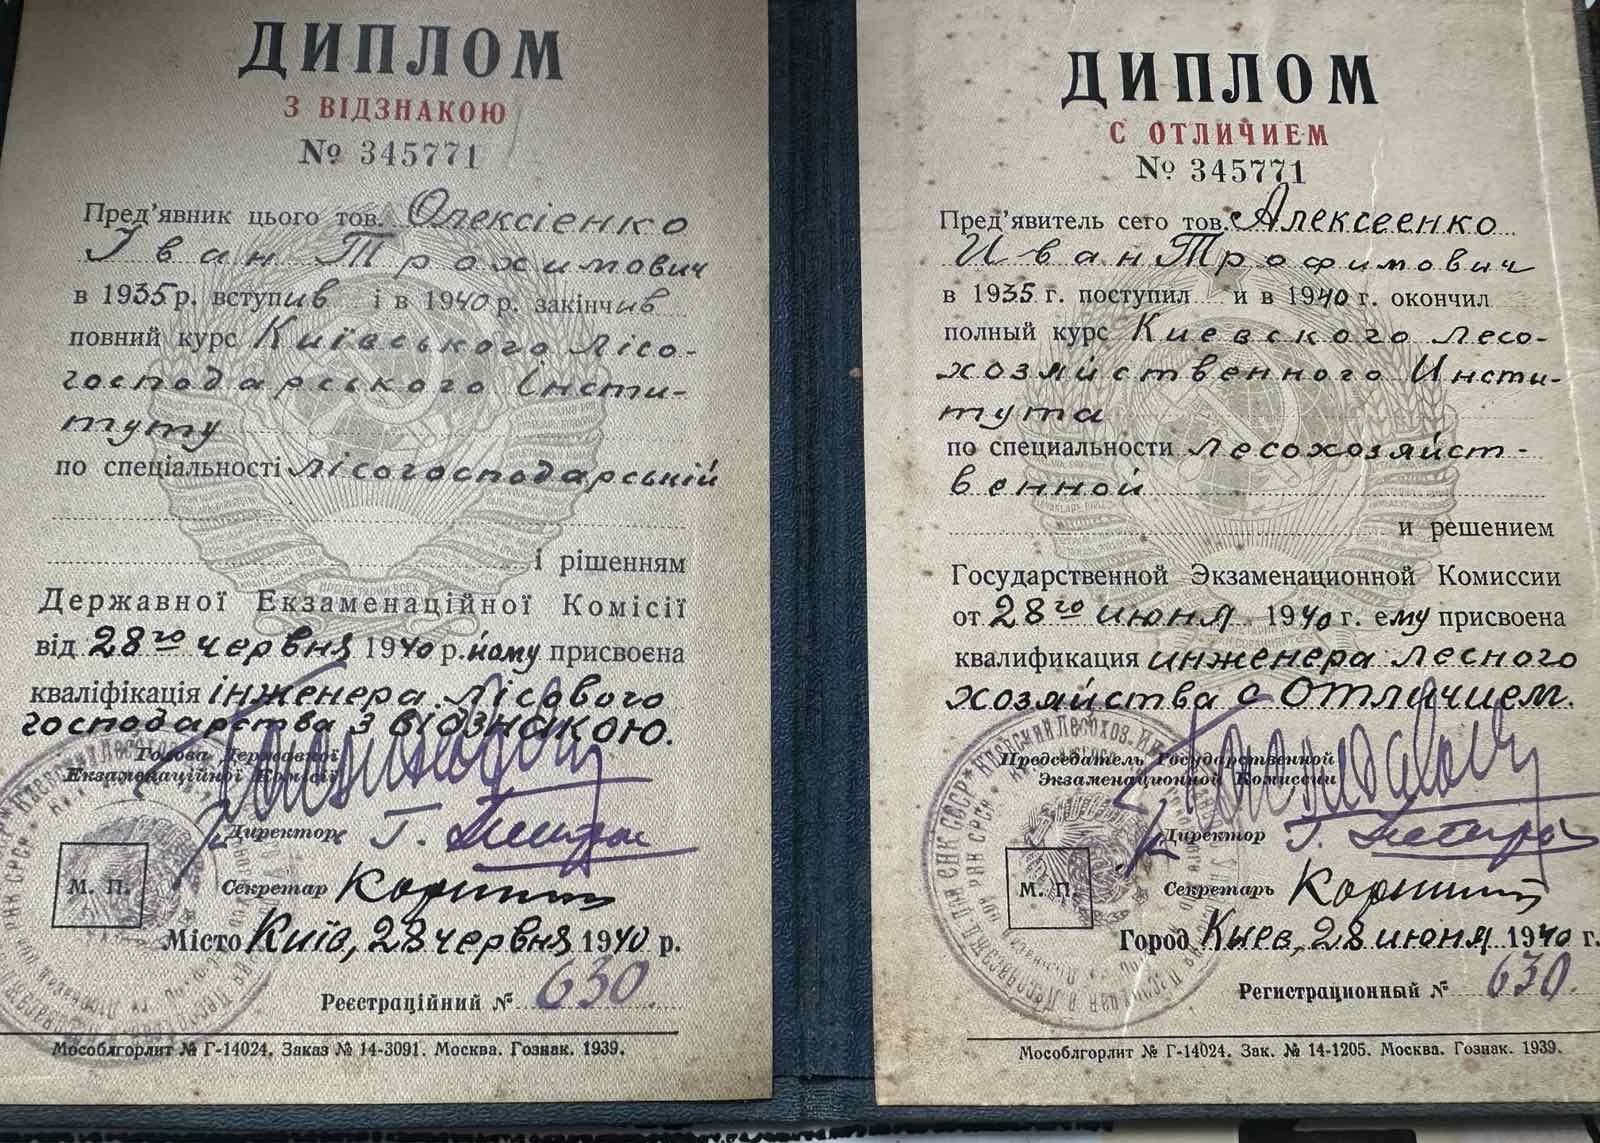 ДИПЛОМ
З ВІДЗНАКОЮ
№ 345771
Пред'явник цього тов. Олексієнко
Іван Трохимович
в 1935 р. вступив і в 1940 р. закінчив
повний курс Київського лісо-
господарського Інсти-
туту
по спеціальності лісогосподарській
і рішенням
Державної Екзаменаційної Комісії
від 28го червня 1940 р. йому присвоєна
кваліфікація інженера лісового
господарства з відзнакою.
Голова Державної
Екзаменаційної Комісії
Директор
М. П.
Секретар
Місто Київ, 28 червня 1940 р.
Реєстраційний № 630.
Мособлгорлит № Г-14024. Заказ № 14-3091. Москва. Гознак. 1939.
ДИПЛОМ
С ОТЛИЧИЕМ
№ 345771
Пред'явитель сего тов. Алексеенко
Иван Трофимович
в 1935 г. поступил и в 1940 г. окончил
полный курс Киевского лесо-
хозяйственного Инсти-
тута
по специальности лесохозяйст-
венной
и решением
Государственной Экзаменационной Комиссии
от 28го июня 1940 г. ему присвоена
квалификация инженера лесного
хозяйства с отличием.
Председатель Государственной
Экзаменационной Комиссии
Директор
М. П.
Секретарь
Город Киев, 28 июня 1940 г.
Регистрационный № 630.
Мособлгорлит № Г-14024. Зак. № 14-1205. Москва. Гознак. 1939.